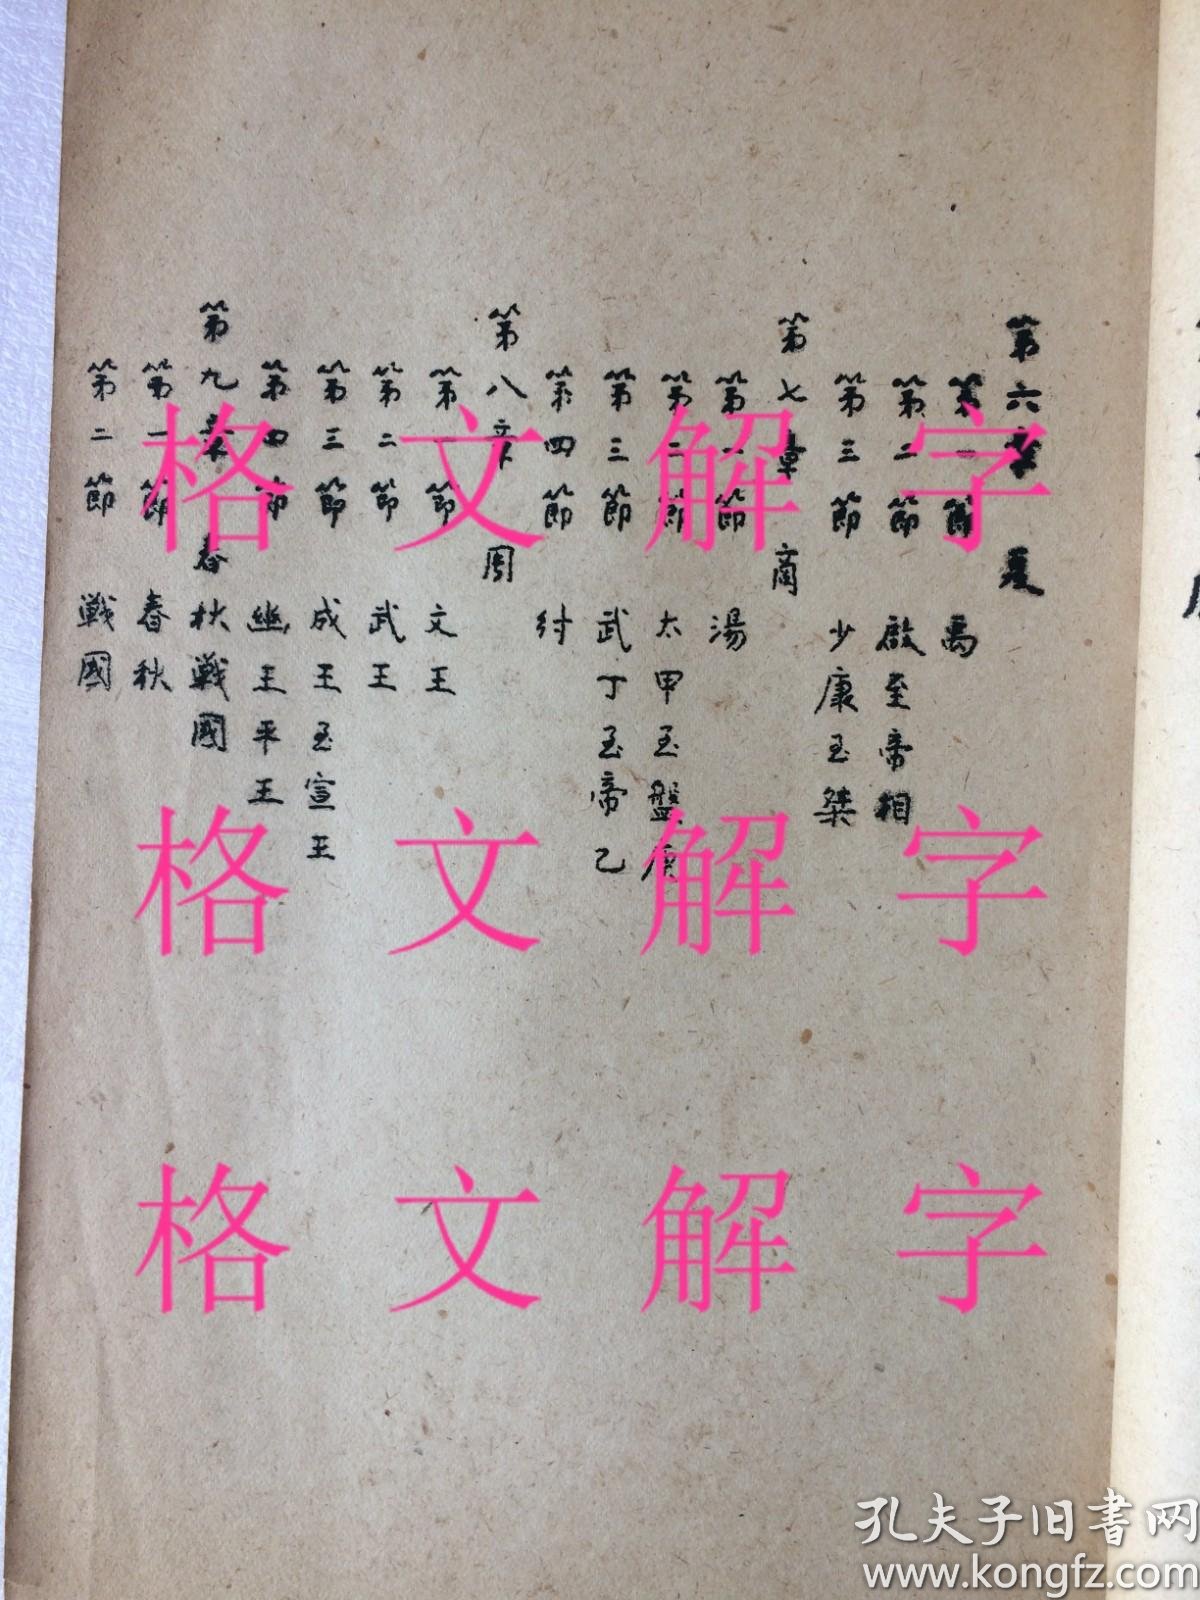 第六章 夏
第一節 禹
第二節 啟至帝相
第三節 少康至桀
第七章 商
第一節 湯
第二節 太甲至盤庚
第三節 武丁至帝乙
第四節 紂
第八章 周
第一節 文王
第二節 武王
第三節 成王至宣王
第四節 幽王平王
第九章 春秋戰國
第一節 春秋
第二節 戰國
格文解字
格文解字
格文解字
孔夫子旧書网
www.kongfz.com